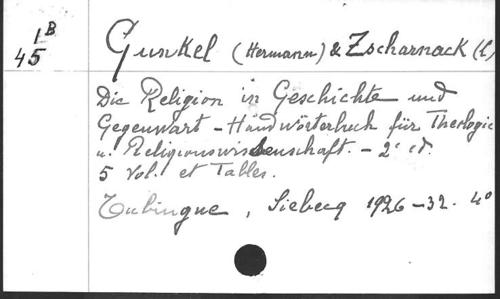 1B
45
Gunkel (Hermann) & Zscharnack (L)
Die Religion in Geschichte und
Gegenwart - Handwörterbuch für Theologie
u. Religionswissenschaft. - 2e éd.
5 Vol. et Tables.
Tubingue, Siebecq 1926-32. 4°